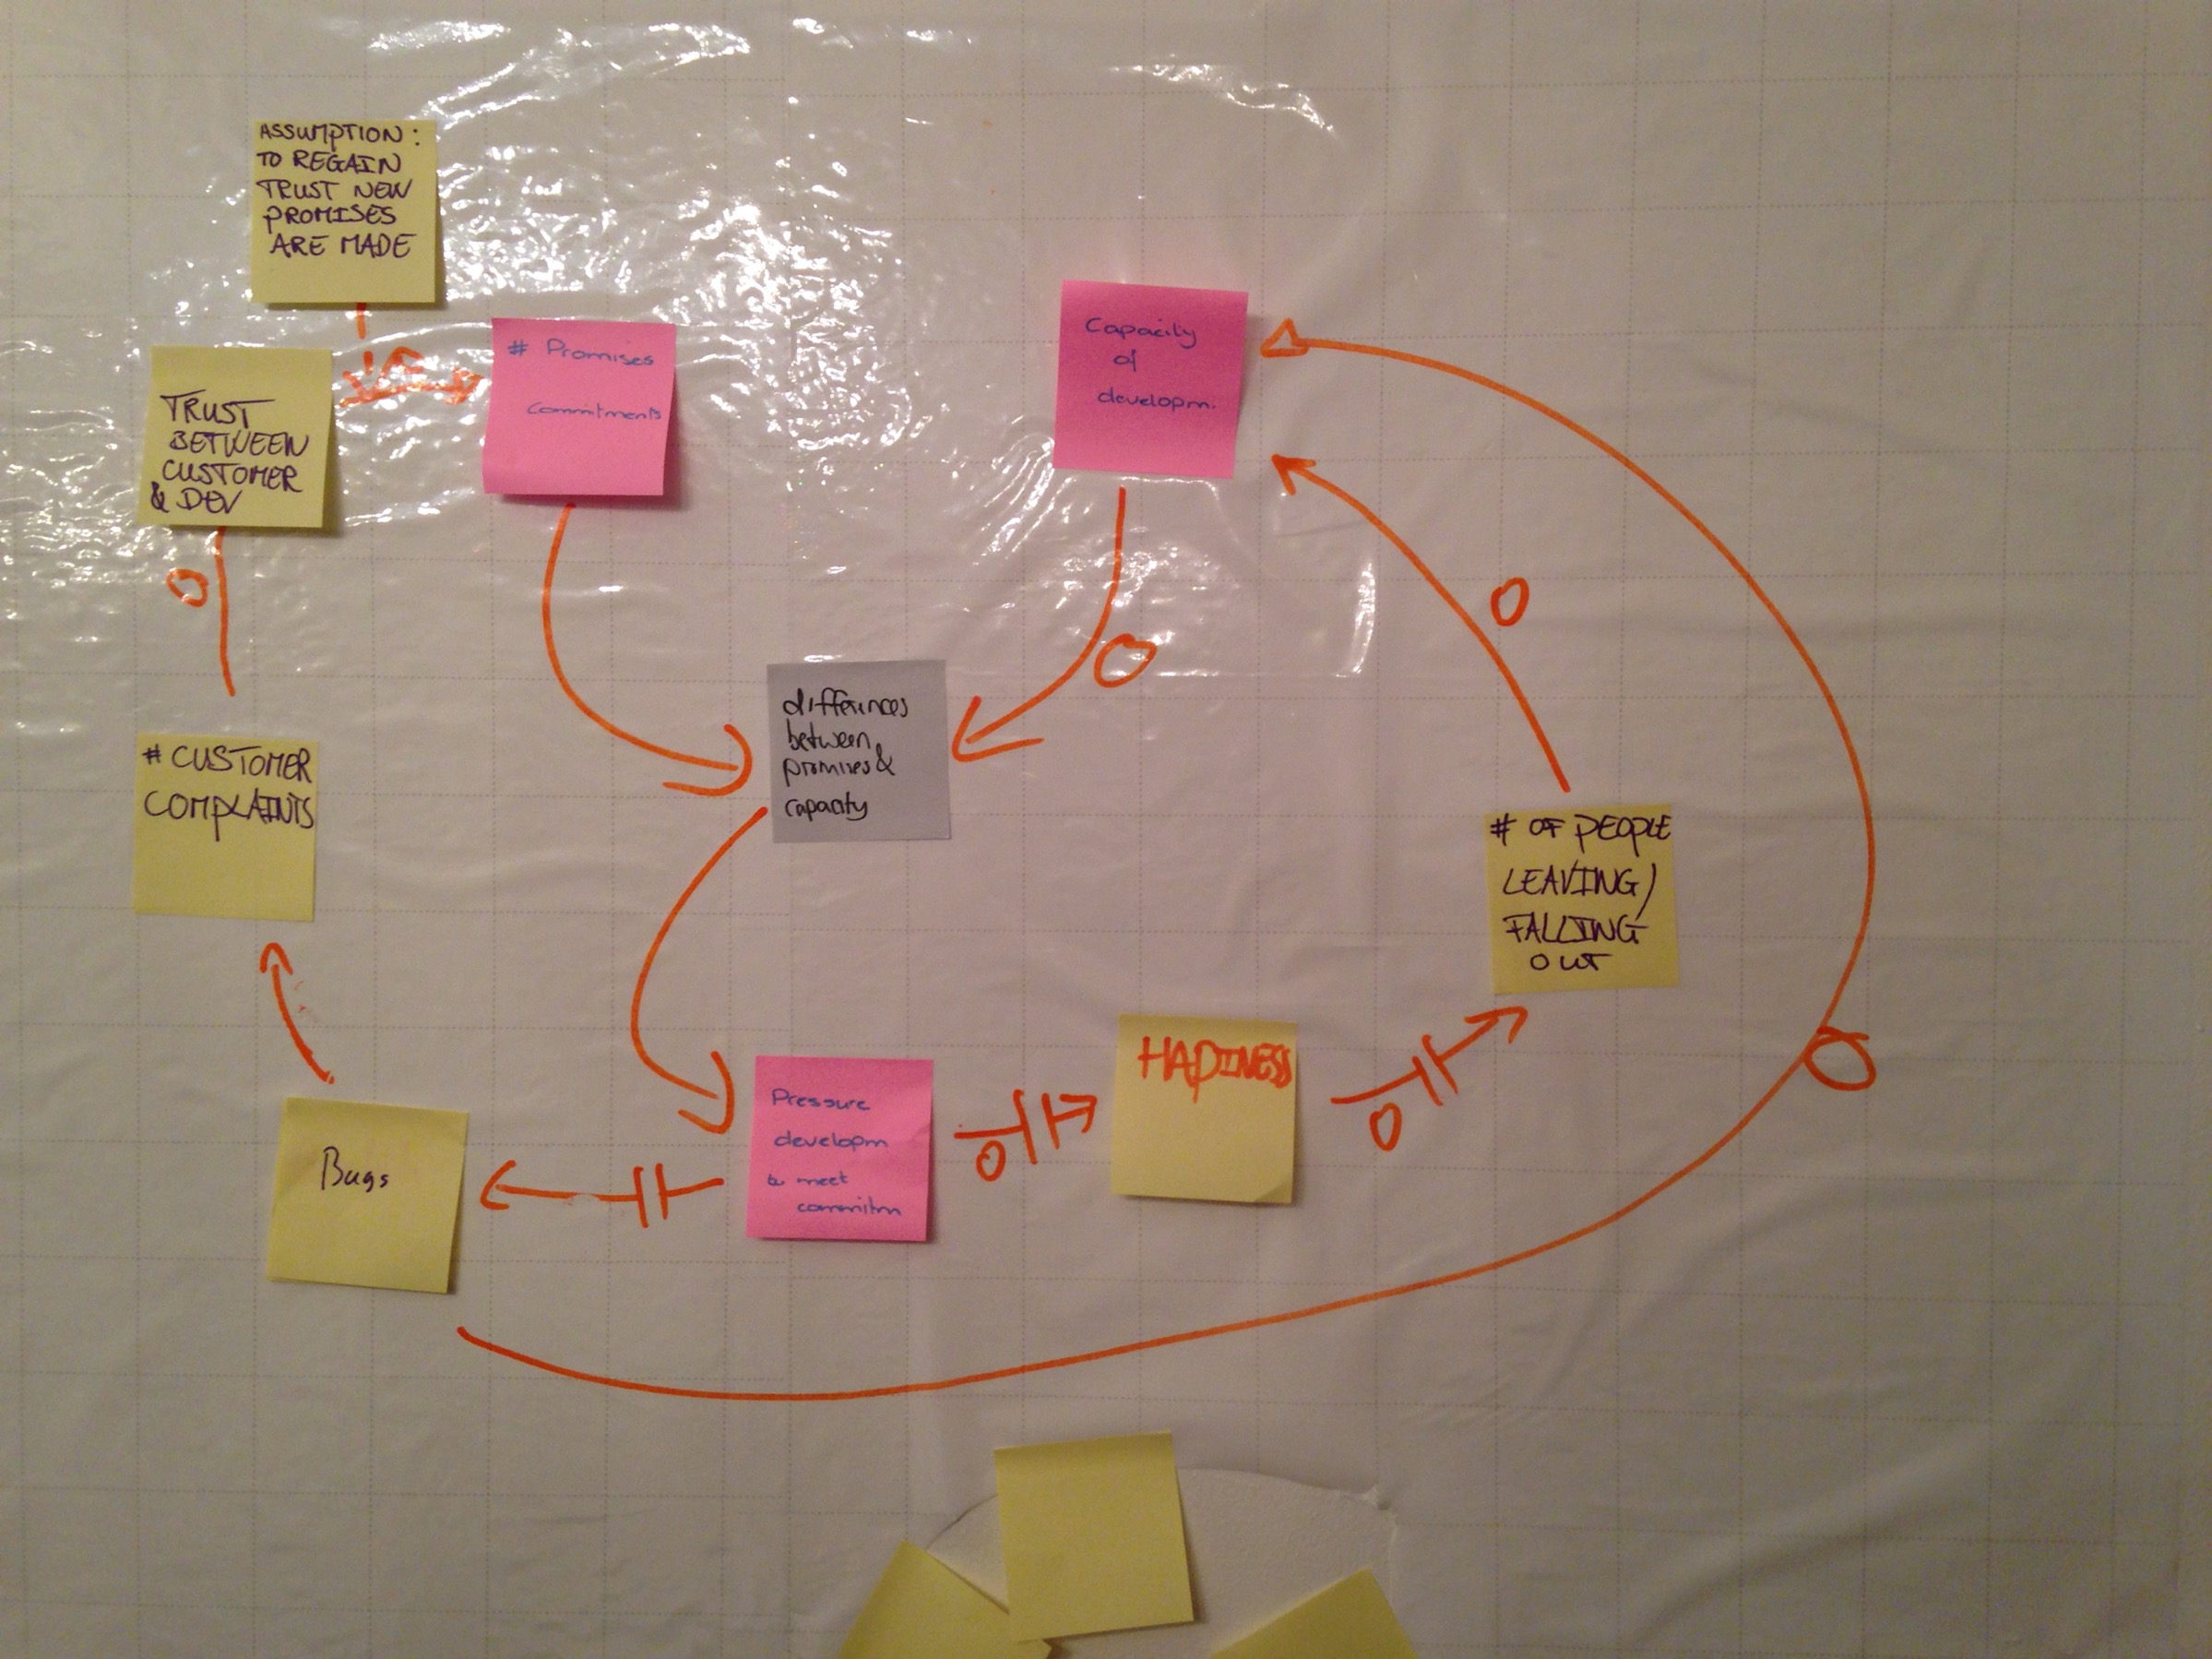 ASSUMPTION:
TO REGAIN
TRUST NEW
PROMISES
ARE MADE
TRUST
BETWEEN
CUSTOMER
& DEV
# Promises
Commitments
Capacity
of
developm.
O
O
O
differences
between
promises &
capacity
# CUSTOMER
COMPLAINTS
# OF PEOPLE
LEAVING/
FALLING
OUT
HAPINESS
O
O
O
Pressure
developm
to meet
commitm
Bugs